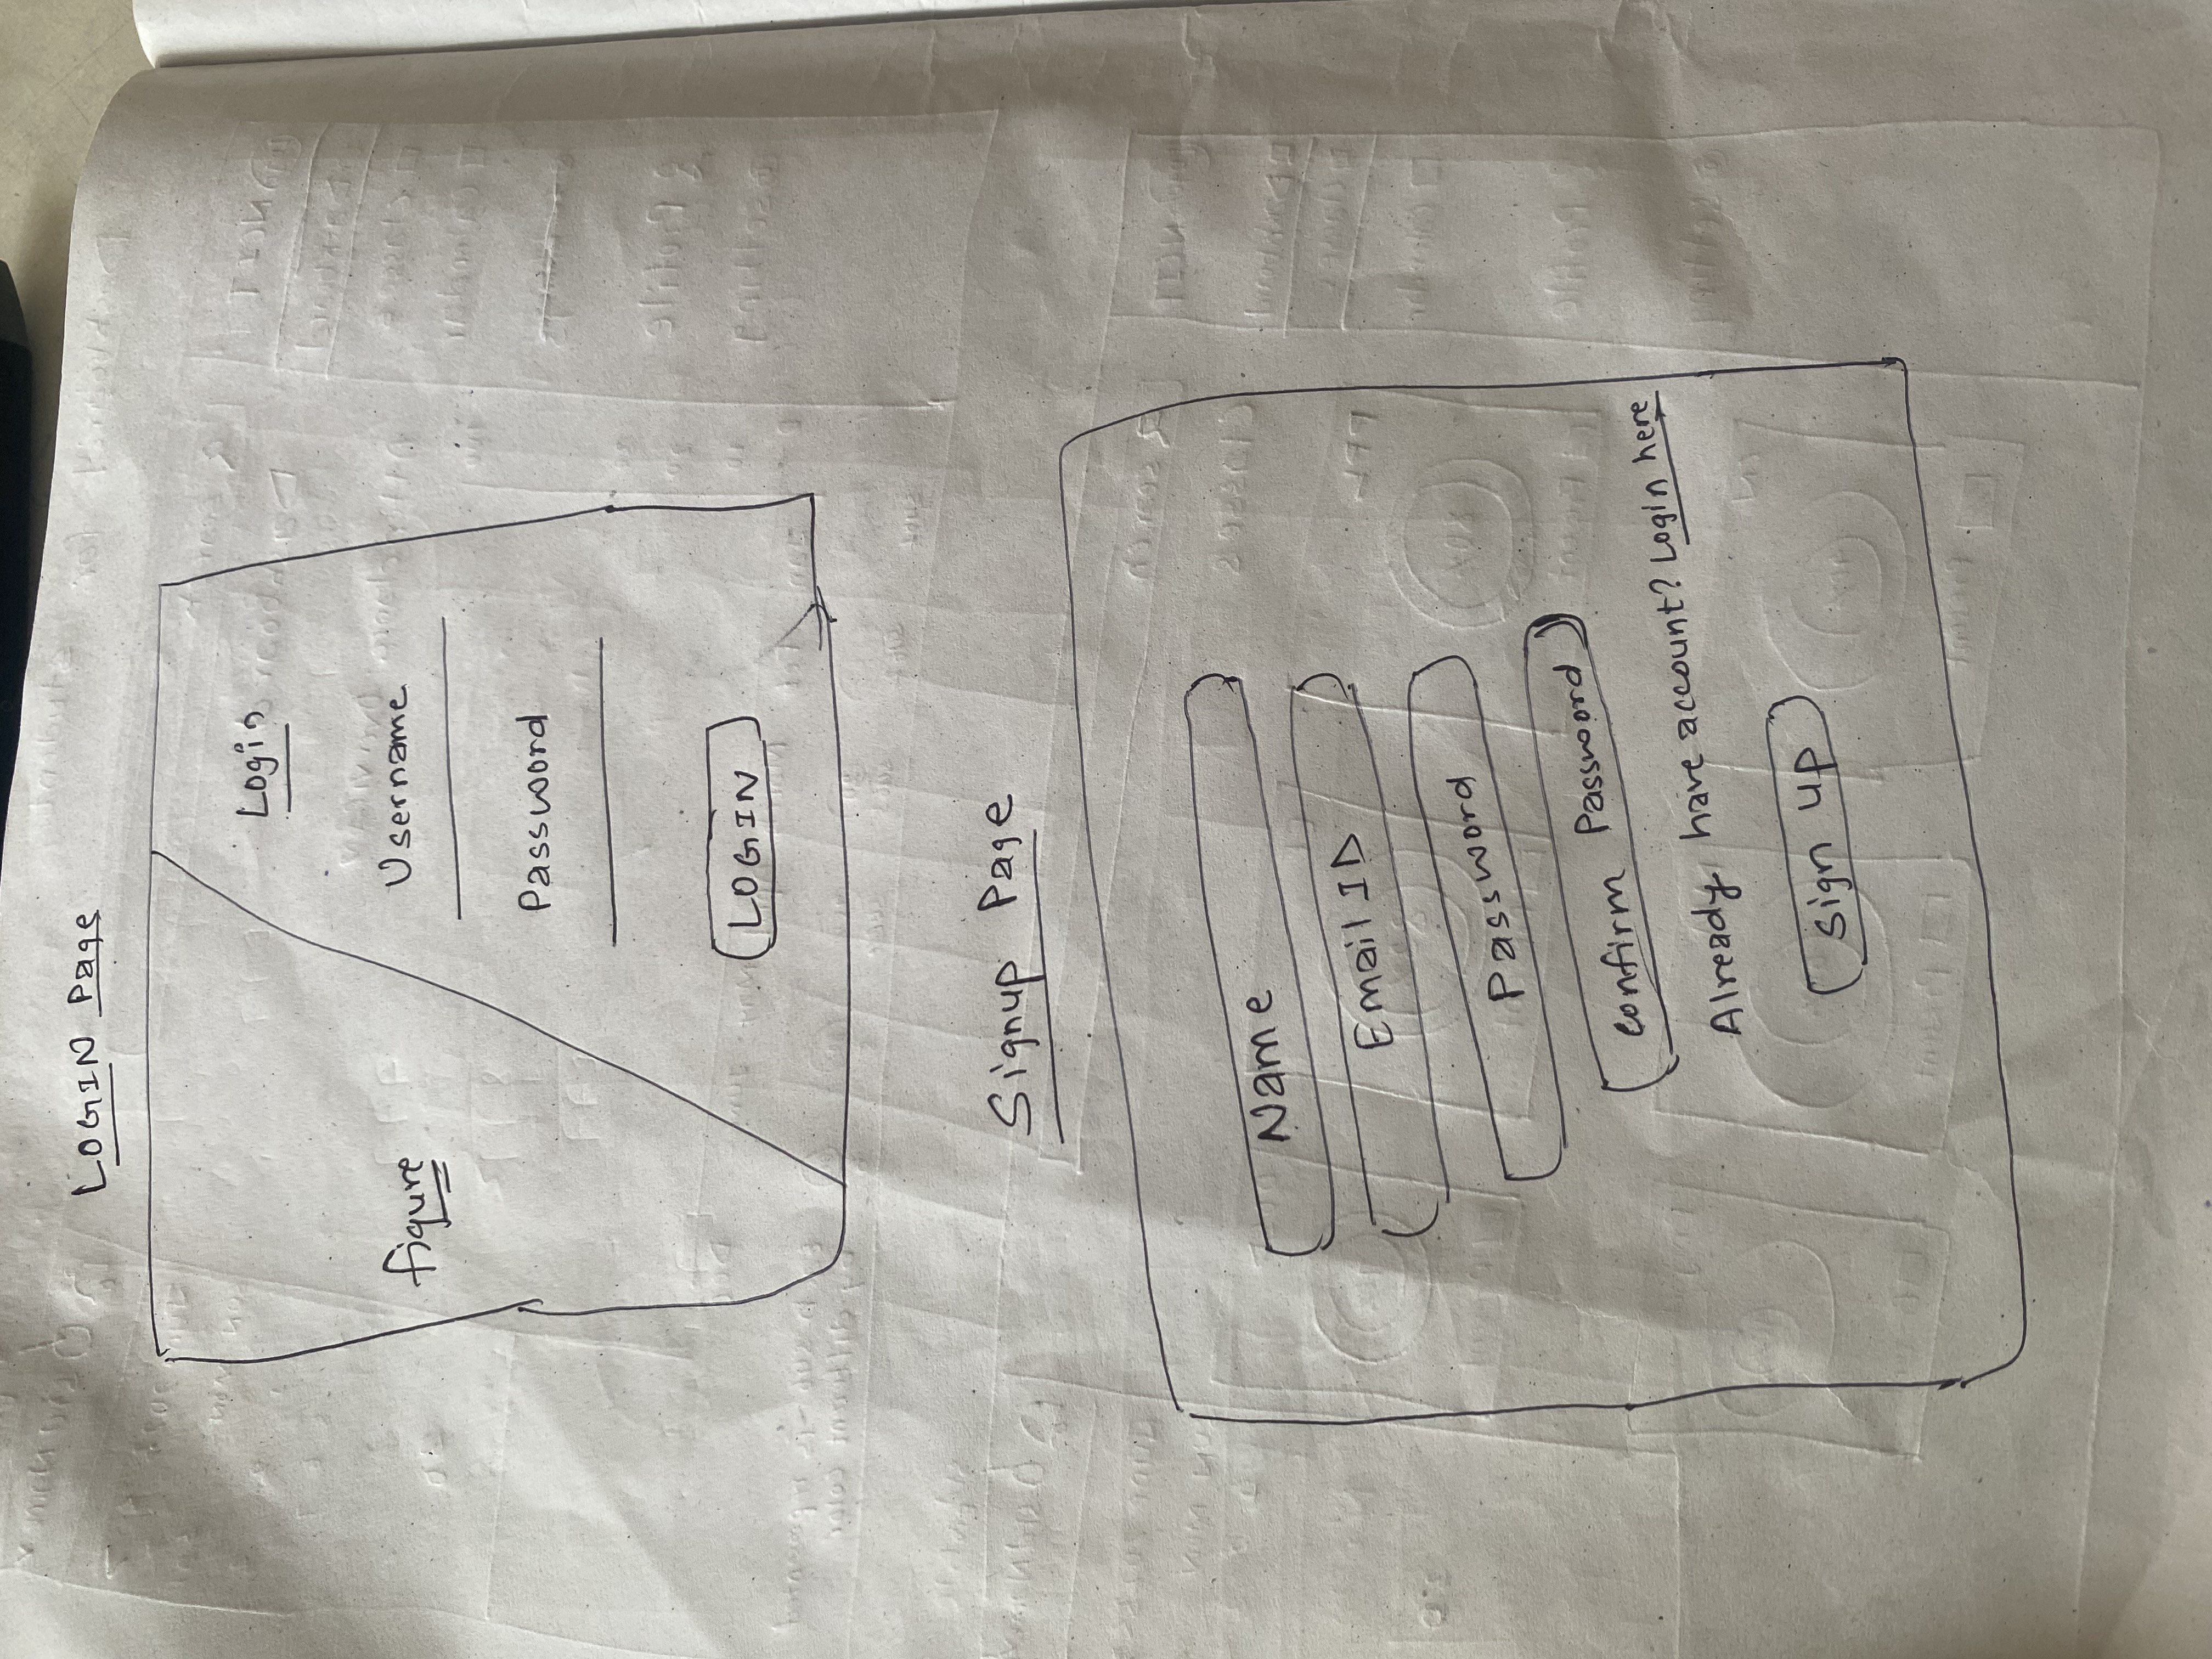 LOGIN Page
Login
figure
Username
Password
LOGIN
Signup Page
Name
Email ID
Password
confirm Password
Already have account? Login here
sign up